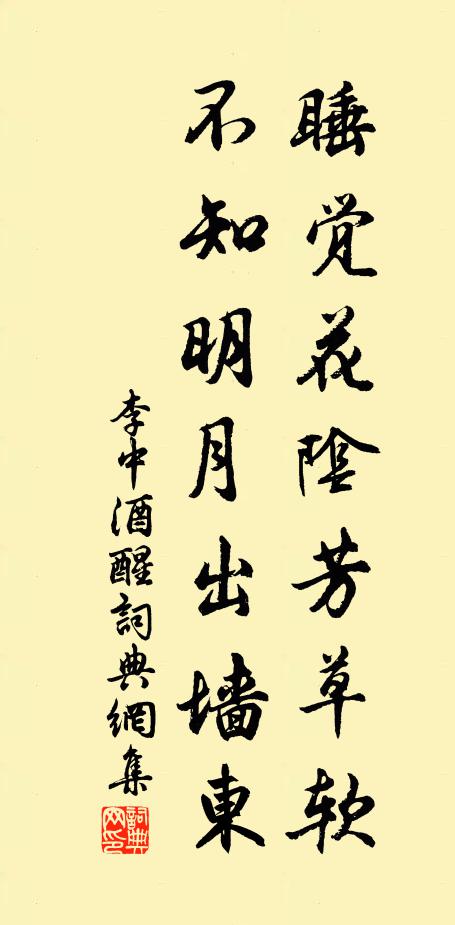 睡觉花陰芳草软
不知明月出墙東
李中酒醒詞典網集
詞典網印